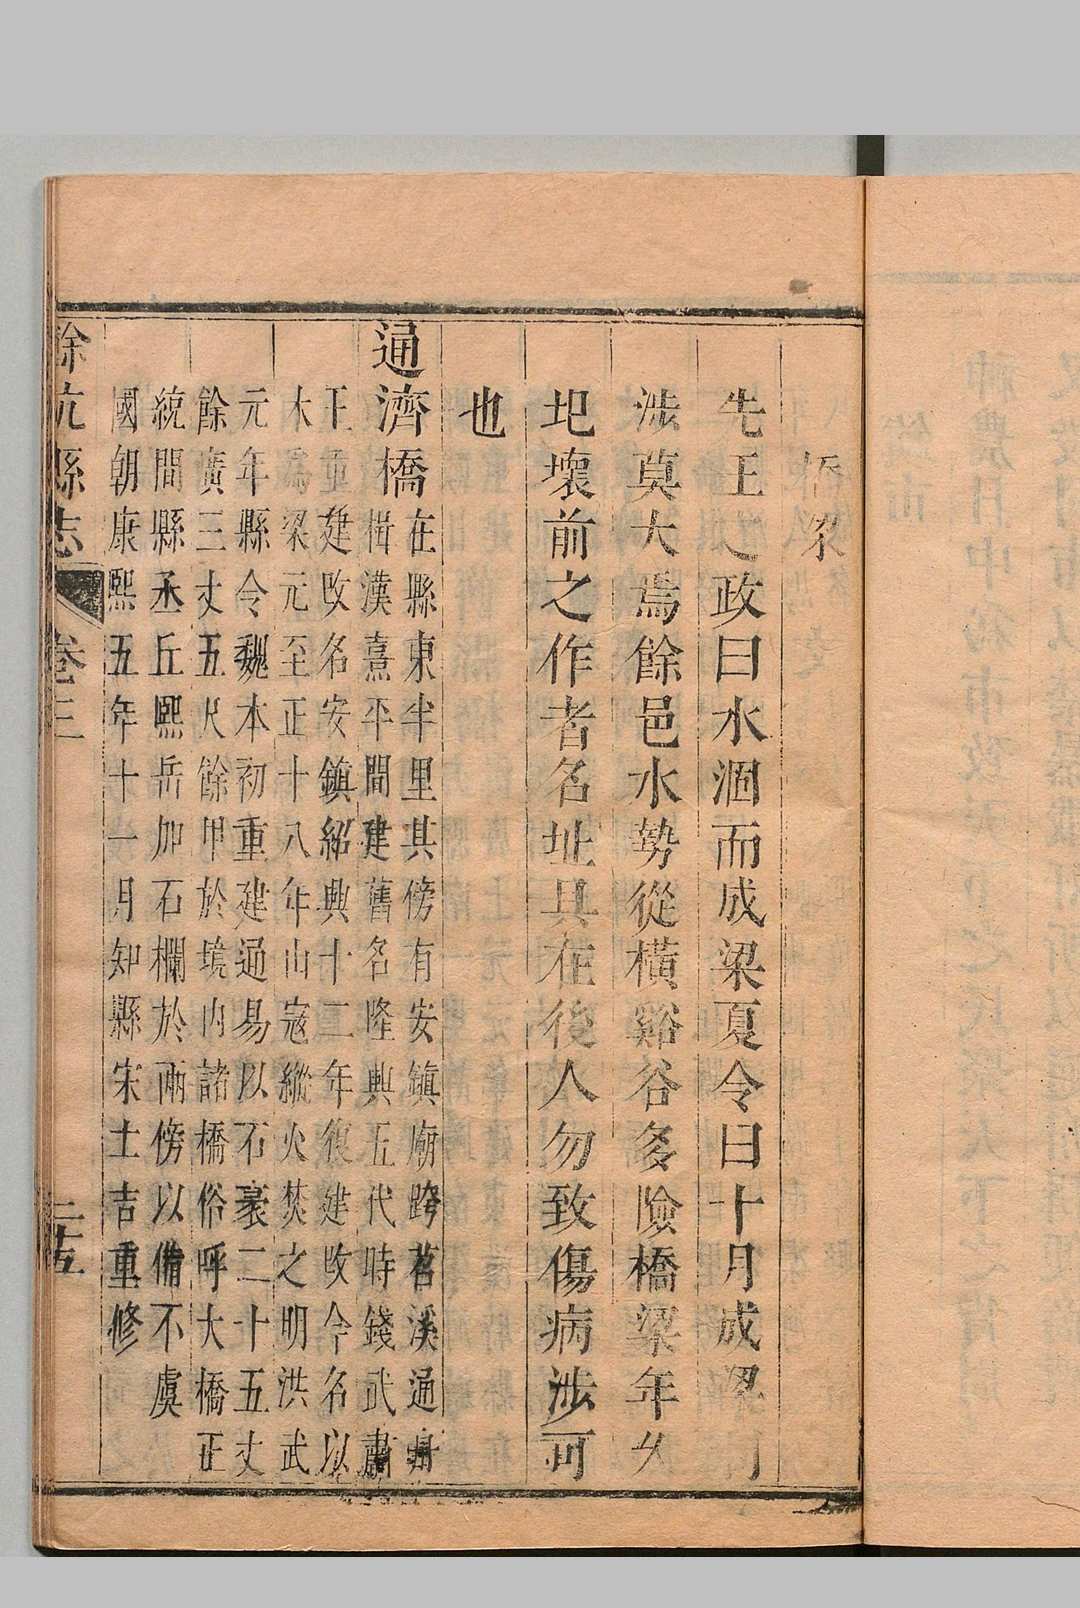 橋梁
先王之政曰水涸而成梁夏令曰十月成梁
涉莫大焉餘邑水勢從橫谿谷多險橋梁年久
圯壞前之作者名址具在後人勿致傷病涉可
也
通濟橋在縣東半里其傍有安鎮廟跨苕溪通舟
楫漢熹平間建舊名隆興五代時錢武肅
王重建改名安鎮紹興十二年復建改今名以
木爲梁元至正十八年山寇縱火焚之明洪武
元年縣令魏本初重建通易以石袤二十五丈
餘廣三丈五尺餘甲於境內諸橋俗呼大橋正
統間縣丞丘熙岳加石欄於兩傍以備不虞
國朝康熙五年十一月知縣宋士吉重修
餘杭縣志 卷三 二十五